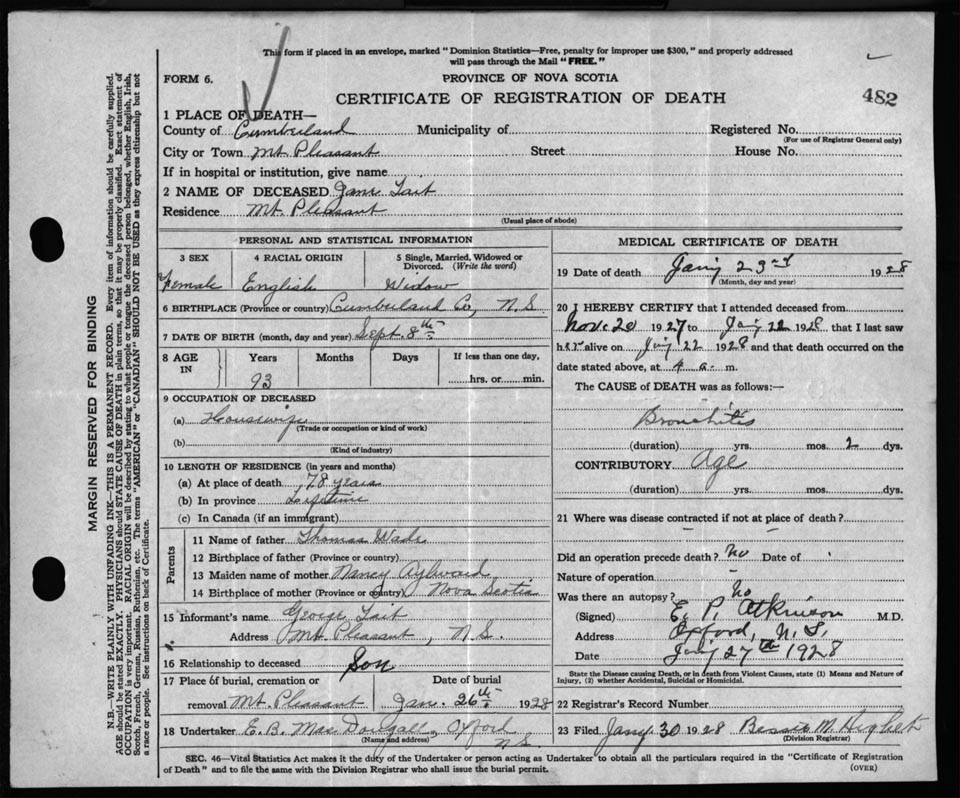 This form if placed in an envelope, marked "Dominion Statistics—Free, penalty for improper use $300," and properly addressed
will pass through the Mail "FREE."
FORM 6.
PROVINCE OF NOVA SCOTIA
CERTIFICATE OF REGISTRATION OF DEATH
482
1 PLACE OF DEATH—
County of Cumberland Municipality of Registered No.
(For use of Registrar General only)
City or Town Mt. Pleasant Street House No.
If in hospital or institution, give name
2 NAME OF DECEASED Jane Tait
Residence Mt. Pleasant
(Usual place of abode)
PERSONAL AND STATISTICAL INFORMATION
3 SEX 4 RACIAL ORIGIN 5 Single, Married, Widowed or Divorced. (Write the word)
Female English Widow
6 BIRTHPLACE (Province or country) Cumberland Co, N.S.
7 DATE OF BIRTH (month, day and year) Sept. 8th
8 AGE IN Years Months Days If less than one day,
93 hrs. or min.
9 OCCUPATION OF DECEASED
(a) Housewife
(Trade or occupation or kind of work)
(b)
(Kind of industry)
10 LENGTH OF RESIDENCE (in years and months)
(a) At place of death 78 years
(b) In province Lifetime
(c) In Canada (if an immigrant)
Parents
11 Name of father Thomas Wade
12 Birthplace of father (Province or country)
13 Maiden name of mother Nancy Aylward
14 Birthplace of mother (Province or country) Nova Scotia
15 Informant's name George Tait
Address Mt. Pleasant, N.S.
16 Relationship to deceased Son
17 Place of burial, cremation or Date of burial
removal Mt. Pleasant Jan. 26th 1928
18 Undertaker E. B. MacDougall, Oxford
(Name and address) N.S.
MEDICAL CERTIFICATE OF DEATH
19 Date of death Jany 23rd 1928
(Month, day and year)
20 I HEREBY CERTIFY that I attended deceased from
Nov. 20 1927 to Jany 22 1928 that I last saw
her alive on Jany 22 1928 and that death occurred on the
date stated above, at 4 a. m.
The CAUSE OF DEATH was as follows:—
Bronchitis
(duration) yrs. mos. 2 dys.
CONTRIBUTORY Age
(duration) yrs. mos. dys.
21 Where was disease contracted if not at place of death?
Did an operation precede death? No Date of
Nature of operation
Was there an autopsy? No
(Signed) E. P. Atkinson M.D.
Address Oxford, N.S.
Date Jany 27th 1928
State the Disease causing Death, or in death from Violent Causes, state (1) Means and Nature of
Injury, (2) whether Accidental, Suicidal or Homicidal.
22 Registrar's Record Number
23 Filed Jany. 30 1928 Bessie M. Highet
(Division Registrar)
SEC. 46—Vital Statistics Act makes it the duty of the Undertaker or person acting as Undertaker to obtain all the particulars required in the "Certificate of Registration
of Death" and to file the same with the Division Registrar who shall issue the burial permit. (OVER)
MARGIN RESERVED FOR BINDING
N.B.—WRITE PLAINLY WITH UNFADING INK—THIS IS A PERMANENT RECORD. Every item of information should be carefully supplied.
AGE should be stated EXACTLY. PHYSICIANS should STATE CAUSE OF DEATH in plain terms, so that it may be properly classified. Exact statement of
OCCUPATION is very important. RACIAL ORIGIN will be described by stating to what people or tongue the deceased person belonged, whether English, Irish,
Scotch, French, German, Russian, Ruthenian, etc. The terms "AMERICAN" or "CANADIAN" SHOULD NOT BE USED as they express citizenship but not
a race or people. See instructions on back of Certificate.